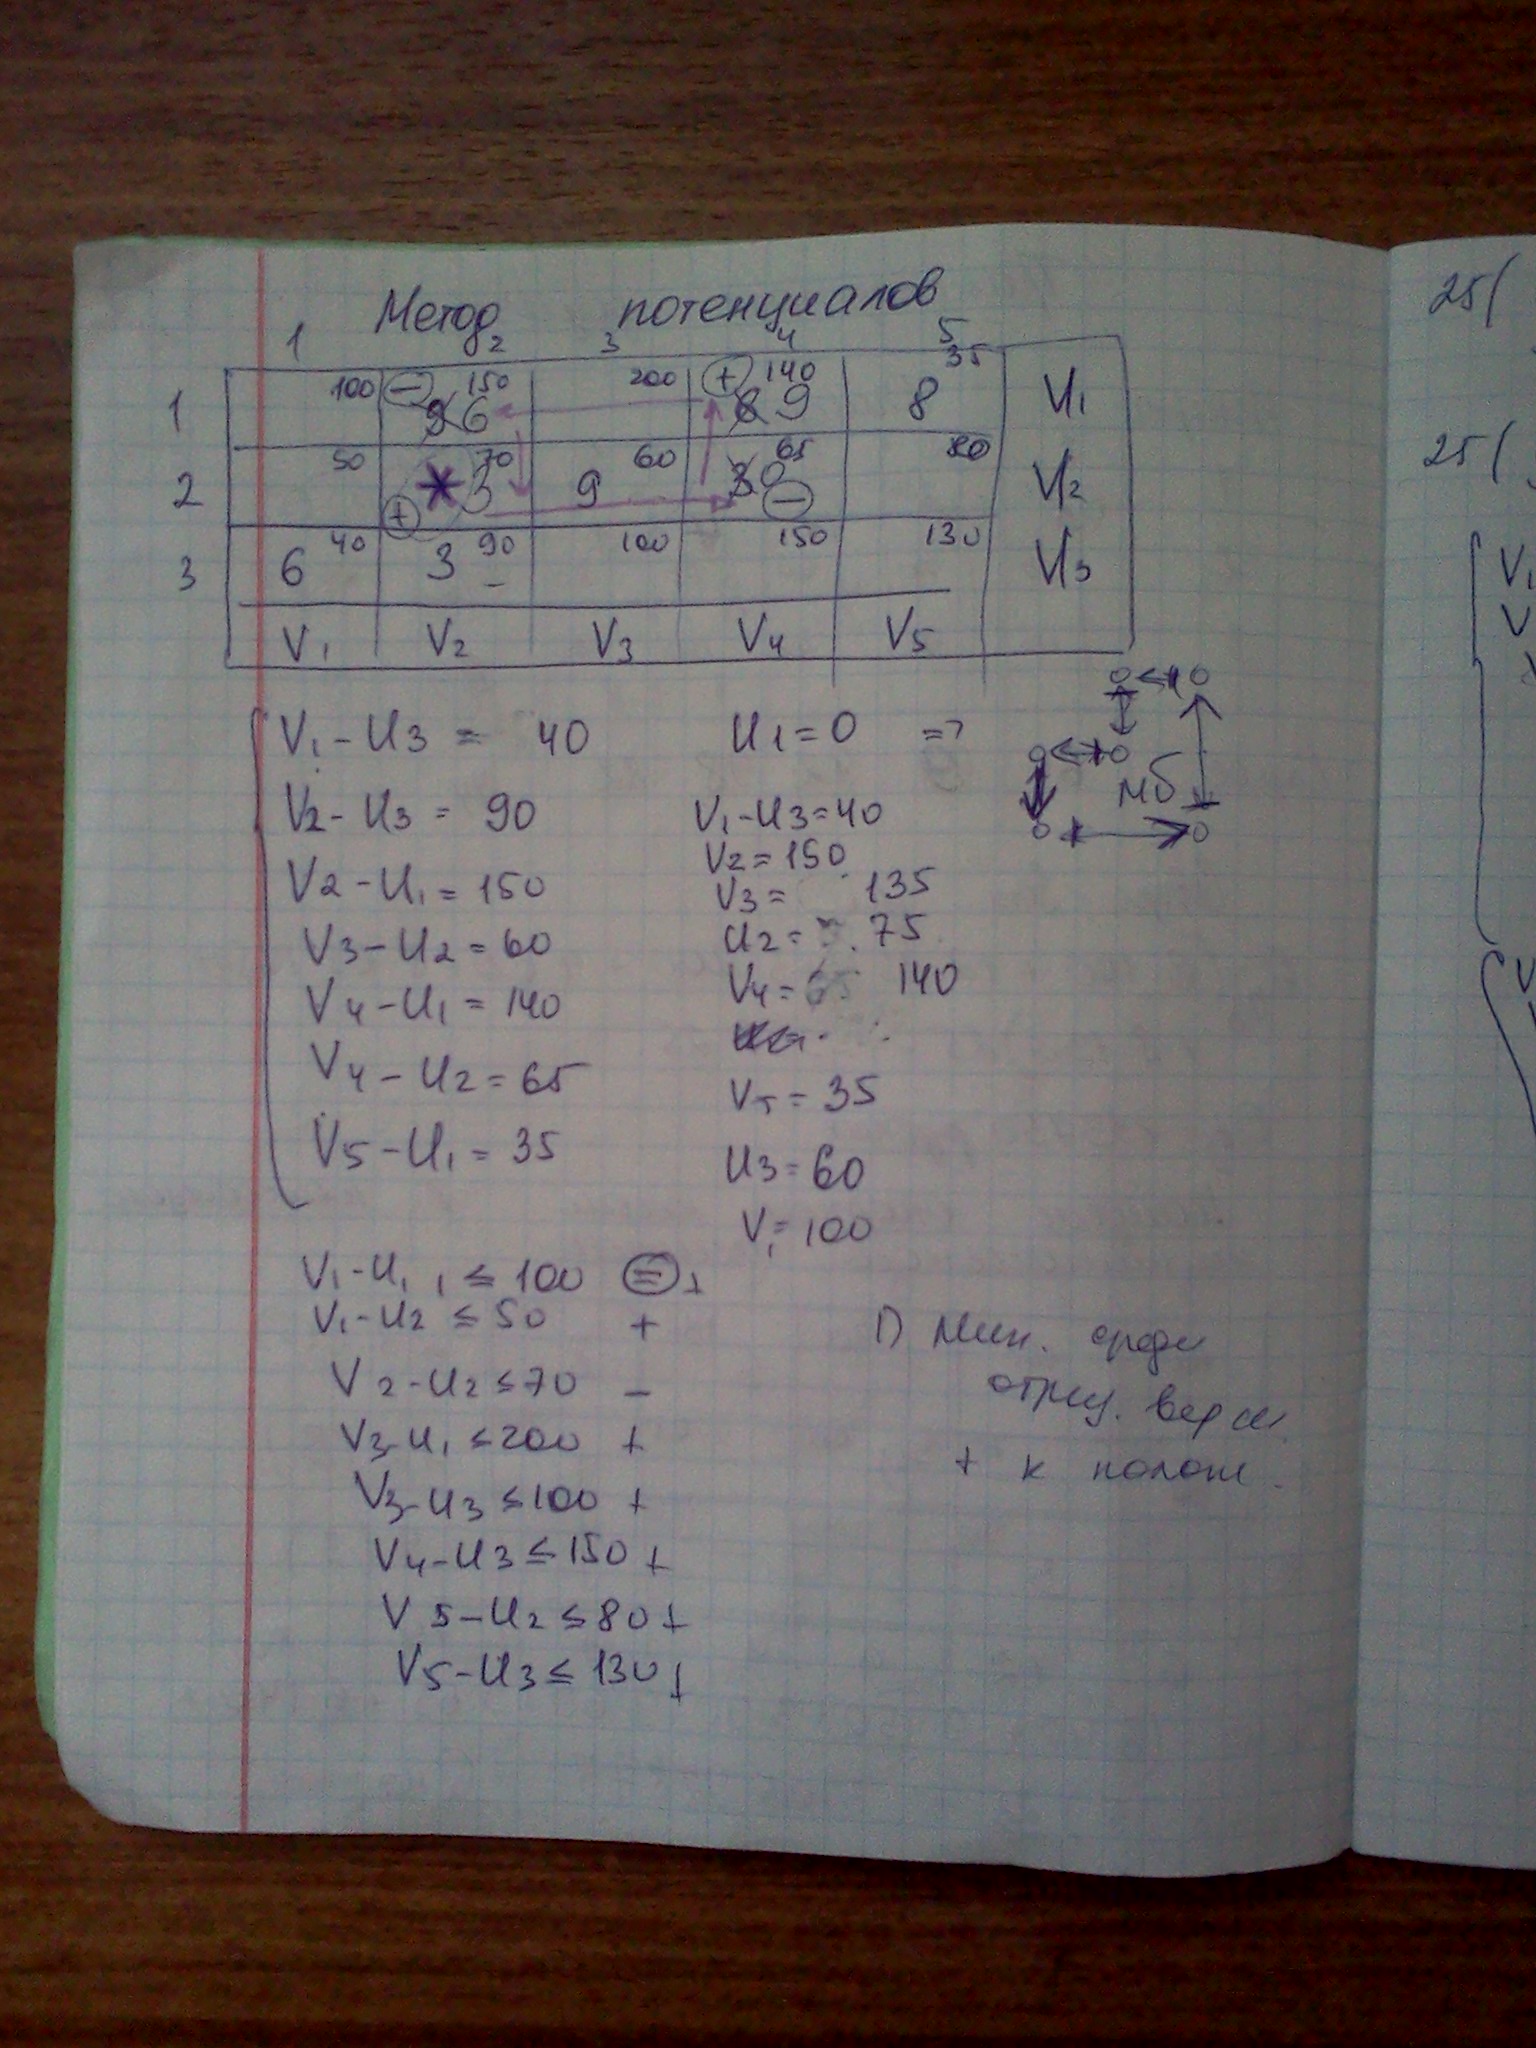 Метод потенциалов
1 2 3 4 5
1 100 − 150 6 200 + 140 9 35 8 U1
2 50 * 70 3 + 60 9 65 0 − 80 U2
3 40 6 90 3 − 100 150 130 U3
V1 V2 V3 V4 V5
V1 - U3 = 40
V2 - U3 = 90
V2 - U1 = 150
V3 - U2 = 60
V4 - U1 = 140
V4 - U2 = 65
V5 - U1 = 35
U1 = 0 =>
V1 - U3 = 40
V2 = 150
V3 = 135
U2 = 75
V4 = 140
V5 = 35
U3 = 60
V1 = 100
мб
V1 - U1 ≤ 100 = +
V1 - U2 ≤ 50 +
V2 - U2 ≤ 70 −
V3 - U1 ≤ 200 +
V3 - U3 ≤ 100 +
V4 - U3 ≤ 150 +
V5 - U2 ≤ 80 +
V5 - U3 ≤ 130 +
1) Мин. среди
отриц. верш.
+ к полож.
25(
25(
V1
V
V